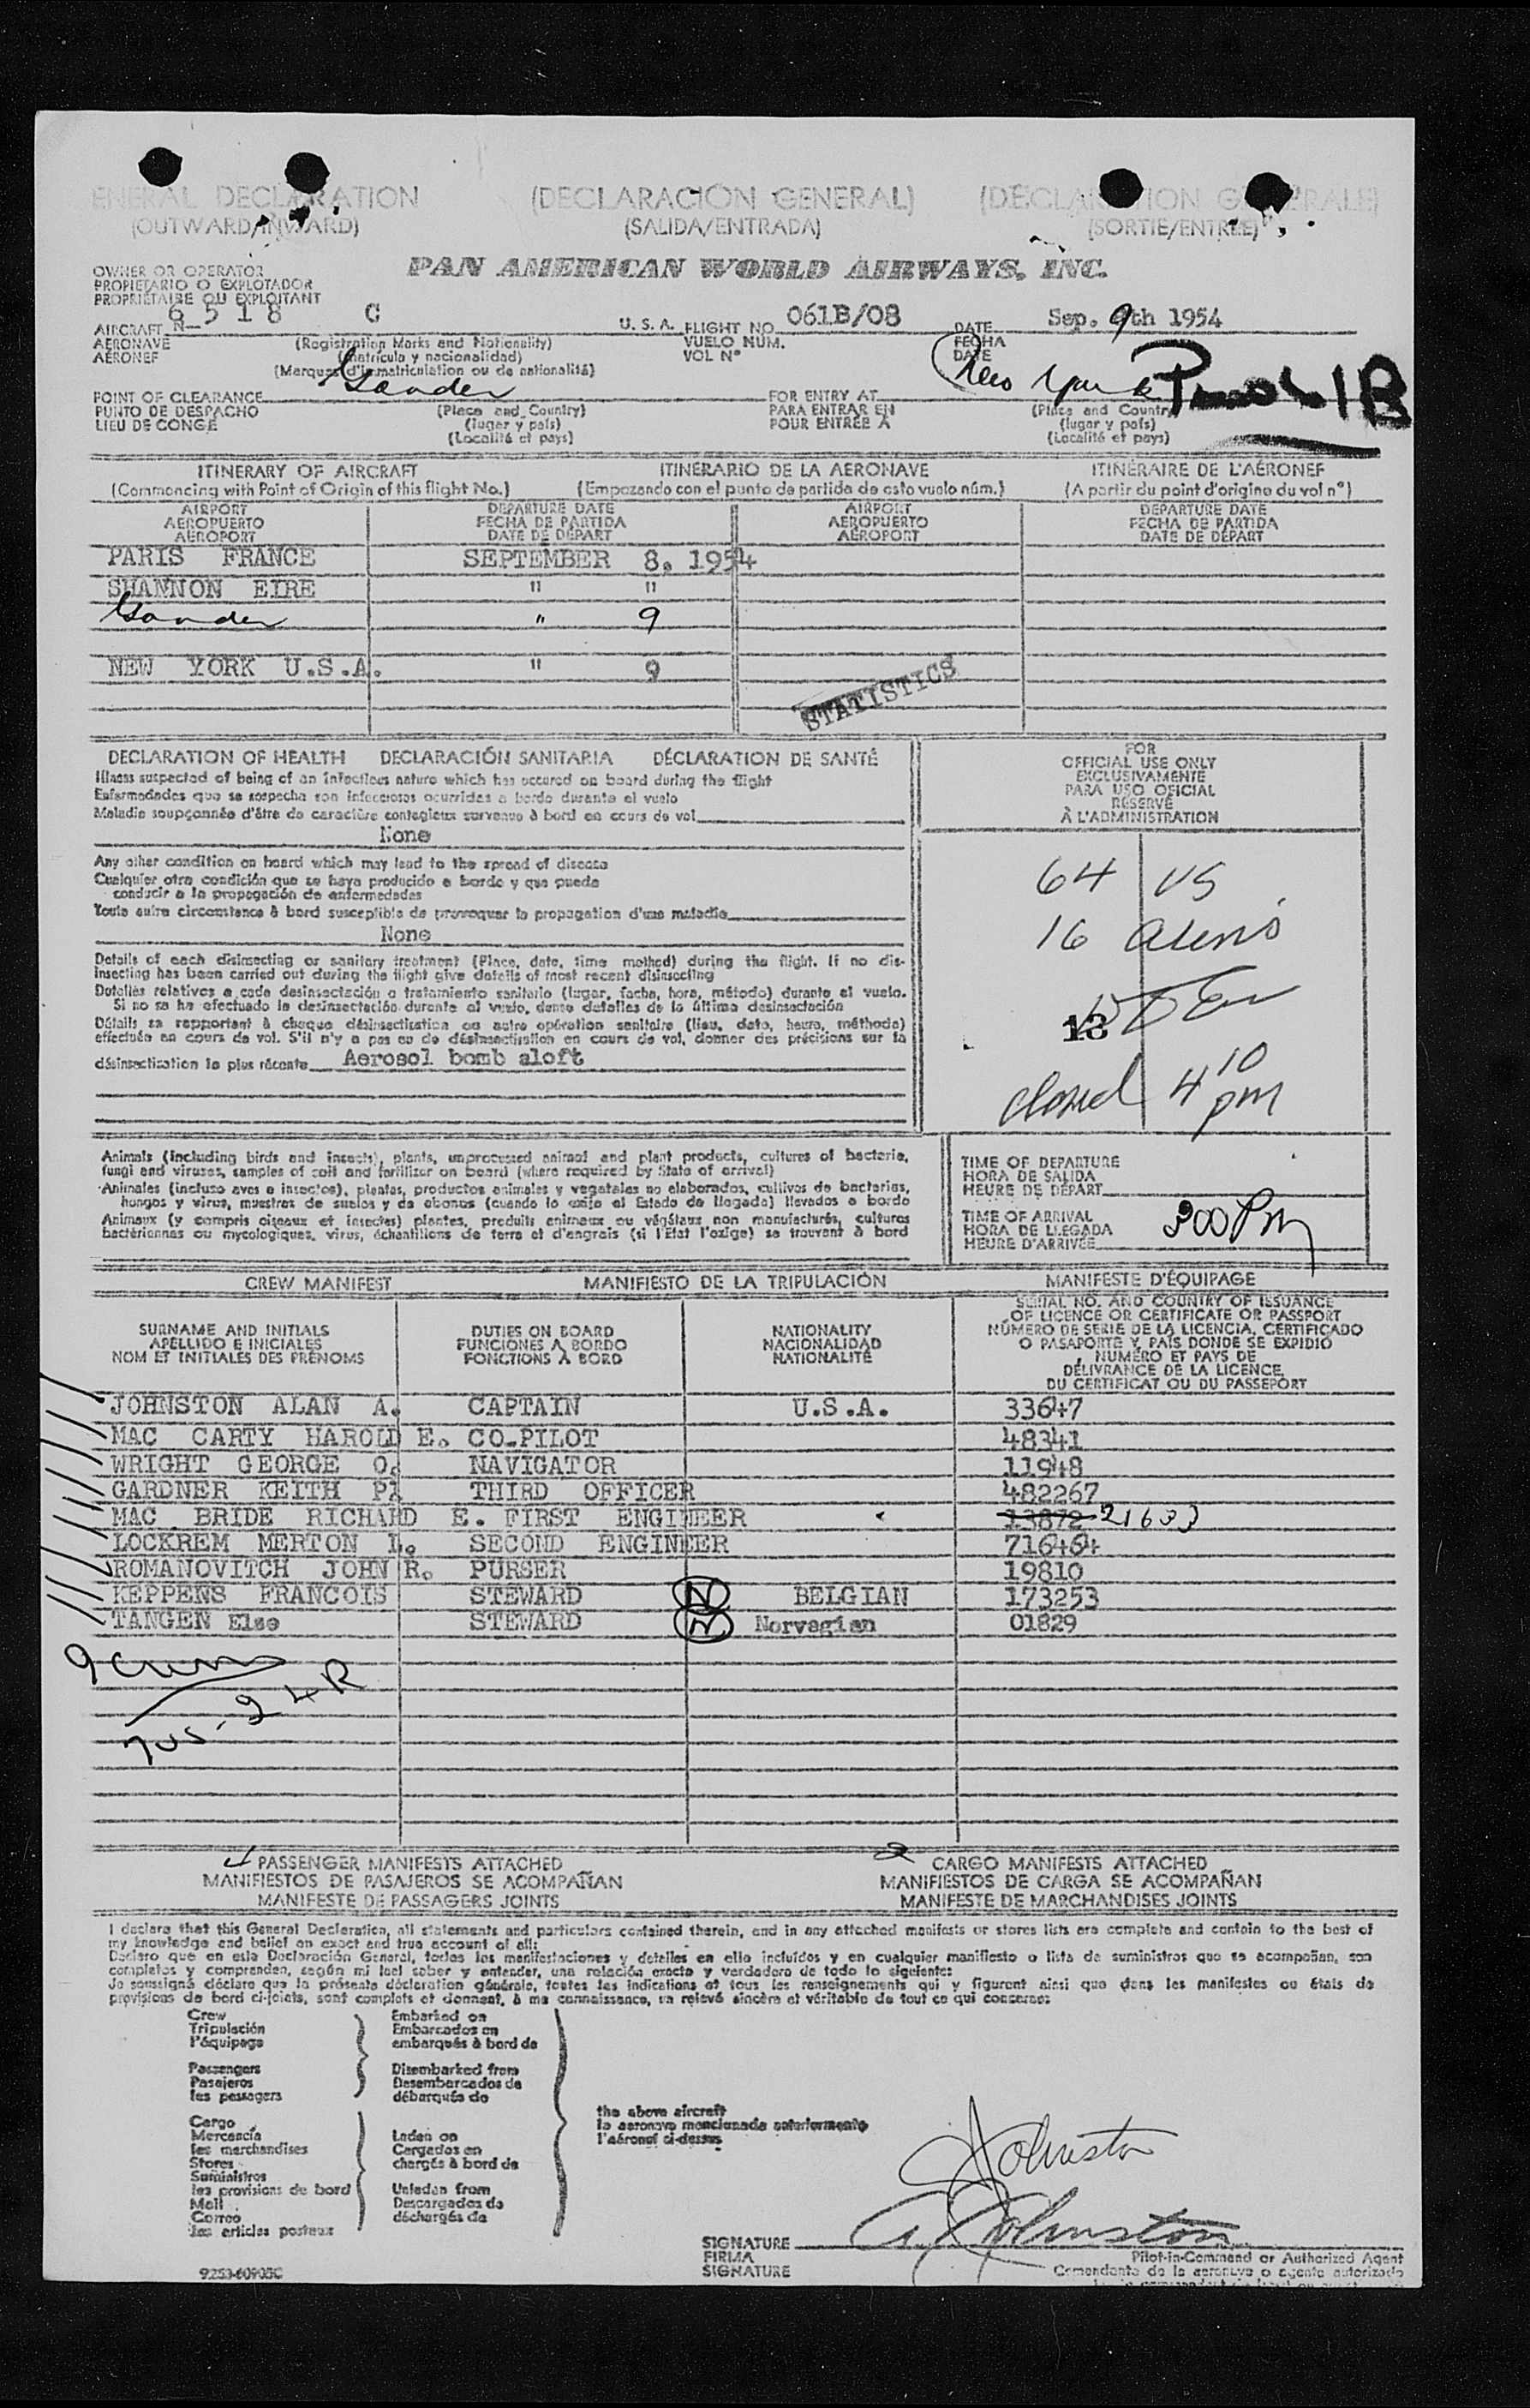 ENERAL DECLARATION (DECLARACIÓN GENERAL) (DÉCLARATION GÉNÉRALE)
(OUTWARD/INWARD) (SALIDA/ENTRADA) (SORTIE/ENTRÉE)
OWNER OR OPERATOR
PROPIETARIO O EXPLOTADOR
PROPRIÉTAIRE OU EXPLOITANT
PAN AMERICAN WORLD AIRWAYS, INC.
AIRCRAFT N 6518 C U.S.A. FLIGHT NO. 061B/08 DATE Sep. 9th 1954
AÉRONAVE (Registration Marks and Nationality) VUELO NUM. FECHA
AÉRONEF (Matrícula y nacionalidad) VOL N° DATE
(Marques d'immatriculation ou de nationalité)
POINT OF CLEARANCE Gander FOR ENTRY AT New York
PUNTO DE DESPACHO (Place and Country) PARA ENTRAR EN (Place and Country)
LIEU DE CONGÉ (lugar y país) POUR ENTRÉE À (lugar y país)
(Localité et pays) (Localité et pays)
ITINERARY OF AIRCRAFT ITINERARIO DE LA AERONAVE ITINÉRAIRE DE L'AÉRONEF
(Commencing with Point of Origin of this flight No.) (Empezando con el punto de partida de esto vuelo núm.) (A partir du point d'origine du vol n°)
AIRPORT DEPARTURE DATE AIRPORT DEPARTURE DATE
AEROPUERTO FECHA DE PARTIDA AEROPUERTO FECHA DE PARTIDA
AÉROPORT DATE DE DÉPART AÉROPORT DATE DE DÉPART
PARIS FRANCE SEPTEMBER 8. 1954
SHANNON EIRE " "
Gander " 9
NEW YORK U.S.A. " 9
STATISTICS
DECLARATION OF HEALTH DECLARACIÓN SANITARIA DÉCLARATION DE SANTÉ
Illness suspected of being of an infectious nature which has occured on board during the flight
Enfermedades que se sospecha son infecciosas ocurridas a bordo durante el vuelo
Maladie soupçonnée d'être de caractère contagieux survenue à bord en cours de vol
None
Any other condition on board which may lead to the spread of disease
Cualquier otra condición que se haya producido a bordo y que pueda
conducir a la propagación de enfermedades
Toute autre circonstance à bord susceptible de provoquer la propagation d'une maladie
None
Details of each disinsecting or sanitary treatment (Place, date, time method) during the flight. If no dis-
insecting has been carried out during the flight give details of most recent disinsecting
Detalles relativos a cada desinsectación o tratamiento sanitario (lugar, fecha, hora, método) durante el vuelo.
Si no se ha efectuado la desinsectación durante el vuelo, dense detalles de la última desinsectación
Détails se rapportant à chaque désinsectisation ou autre opération sanitaire (lieu, date, heure, méthode)
effectuée en cours de vol. S'il n'y a pas eu de désinsectisation en cours de vol, donner des précisions sur la
désinsectisation la plus récente Aerosol bomb aloft
FOR
OFFICIAL USE ONLY
EXCLUSIVAMENTE
PARA USO OFICIAL
RÉSERVÉ
À L'ADMINISTRATION
64 US
16 aliens
13
closed 4 10 pm
Animals (including birds and insects), plants, unprocessed animal and plant products, cultures of bacteria,
fungi and viruses, samples of soil and fertilizer on board (where required by State of arrival)
Animales (incluso aves e insectos), plantas, productos animales y vegetales no elaborados, cultivos de bacterias,
hongos y virus, muestras de suelos y de abonos (cuando lo exija el Estado de llegada) llevados a bordo
Animaux (y compris oiseaux et insectes) plantes, produits animaux ou végétaux non manufacturés, cultures
bactériennes ou mycologiques, virus, échantillons de terre et d'engrais (si l'Etat l'exige) se trouvant à bord
TIME OF DEPARTURE
HORA DE SALIDA
HEURE DE DÉPART
TIME OF ARRIVAL
HORA DE LLEGADA
HEURE D'ARRIVÉE
300 Pm
CREW MANIFEST MANIFIESTO DE LA TRIPULACIÓN MANIFESTE D'ÉQUIPAGE
SURNAME AND INITIALS
APELLIDO E INICIALES
NOM ET INITIALES DES PRÉNOMS
DUTIES ON BOARD
FUNCIONES A BORDO
FONCTIONS À BORD
NATIONALITY
NACIONALIDAD
NATIONALITÉ
SERIAL NO. AND COUNTRY OF ISSUANCE
OF LICENCE OR CERTIFICATE OR PASSPORT
NÚMERO DE SERIE DE LA LICENCIA, CERTIFICADO
O PASAPORTE Y PAÍS DONDE SE EXPIDIÓ
NUMÉRO ET PAYS DE
DÉLIVRANCE DE LA LICENCE,
DU CERTIFICAT OU DU PASSEPORT
JOHNSTON ALAN A. CAPTAIN U.S.A. 33647
MAC CARTY HAROLD E. CO-PILOT 48341
WRIGHT GEORGE O. NAVIGATOR 11948
GARDNER KEITH P. THIRD OFFICER 482267
MAC BRIDE RICHARD E. FIRST ENGINEER 13872 21633
LOCKREM MERTON L. SECOND ENGINEER 71646
ROMANOVITCH JOHN R. PURSER 19810
KEPPENS FRANCOIS STEWARD N BELGIAN 173253
TANGEN Else STEWARD N Norvegian 01829
PASSENGER MANIFESTS ATTACHED CARGO MANIFESTS ATTACHED
MANIFIESTOS DE PASAJEROS SE ACOMPAÑAN MANIFIESTOS DE CARGA SE ACOMPAÑAN
MANIFESTE DE PASSAGERS JOINTS MANIFESTE DE MARCHANDISES JOINTS
I declare that this General Declaration, all statements and particulars contained therein, and in any attached manifests or stores lists are complete and contain to the best of
my knowledge and belief an exact and true account of all:
Declaro que en esta Declaración General, todas las manifestaciones y detalles en ella incluídos y en cualquier manifiesto o lista de suministros que se acompañan, son
completos y comprenden, según mi leal saber y entender, una relación exacta y verdadera de todo lo siguiente:
Je soussigné déclare que la présente déclaration générale, toutes les indications et tous les renseignements qui y figurent ainsi que dans les manifestes ou états de
provisions de bord ci-joints, sont complets et donnent, à ma connaissance, un relevé sincère et véritable de tout ce qui concerne:
Crew
Tripulación
l'équipage
Passengers
Pasajeros
les passagers
Embarked on
Embarcados en
embarqués à bord de
Disembarked from
Desembarcados de
débarqués de
Cargo
Mercancía
les marchandises
Stores
Suministros
les provisions de bord
Mail
Correo
les articles postaux
Laden on
Cargados en
chargés à bord de
Unladen from
Descargados de
déchargés de
the above aircraft
la aeronave mencionada anteriormente
l'aéronef ci-dessus
Johnston
A. Johnston
SIGNATURE
FIRMA
SIGNATURE
Pilot-in-Command or Authorized Agent
Comandante de la aeronave o agente autorizado
9253-60905C